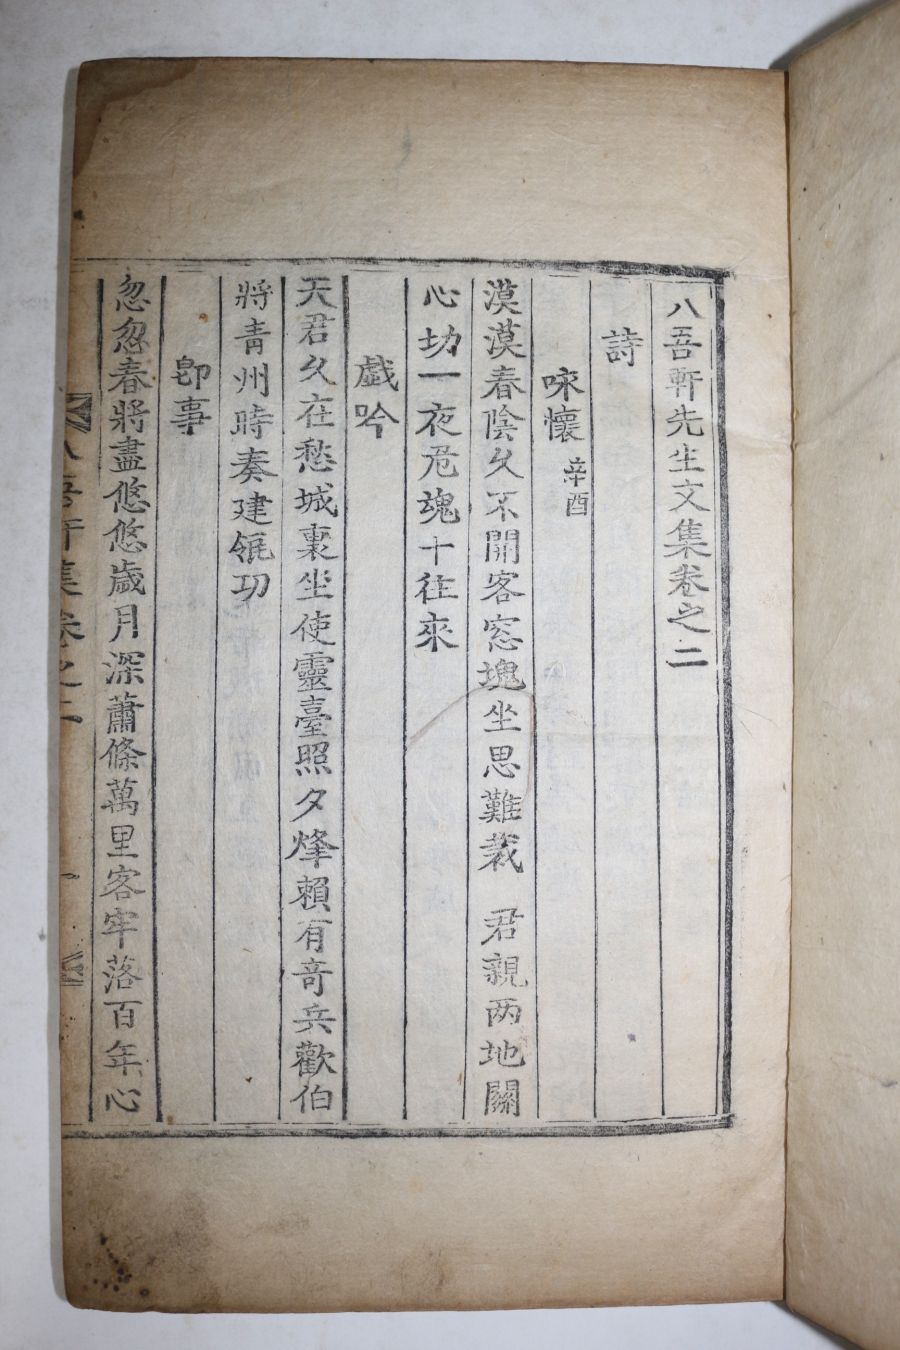 八吾軒先生文集卷之二
詩
咏懷 辛酉
漠漠春陰久不開客窓塊坐思難裁 君親兩地關
心切一夜危魂十往來
戱吟
天君久在愁城裏坐使靈臺照夕烽賴有奇兵歡伯
將青州時奏建瓴功
卽事
忽忽春將盡悠悠歲月深蕭條萬里客牢落百年心
八吾軒集卷之二 一